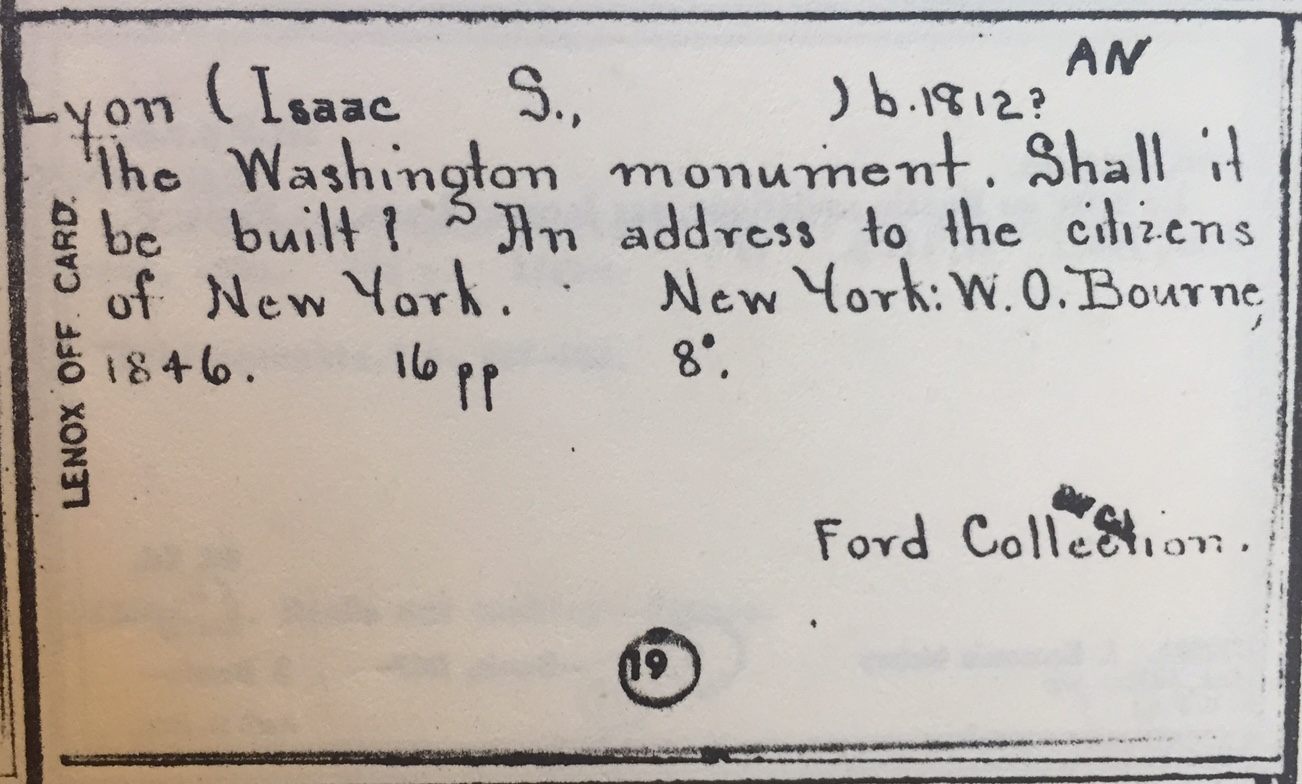 AN
Lyon (Isaac S., ) b. 1812?
The Washington monument. Shall it
be built? An address to the citizens
of New York. New York: W. O. Bourne,
1846. 16 pp 8°.
LENOX OFF. CARD.
Ford Collection.
19